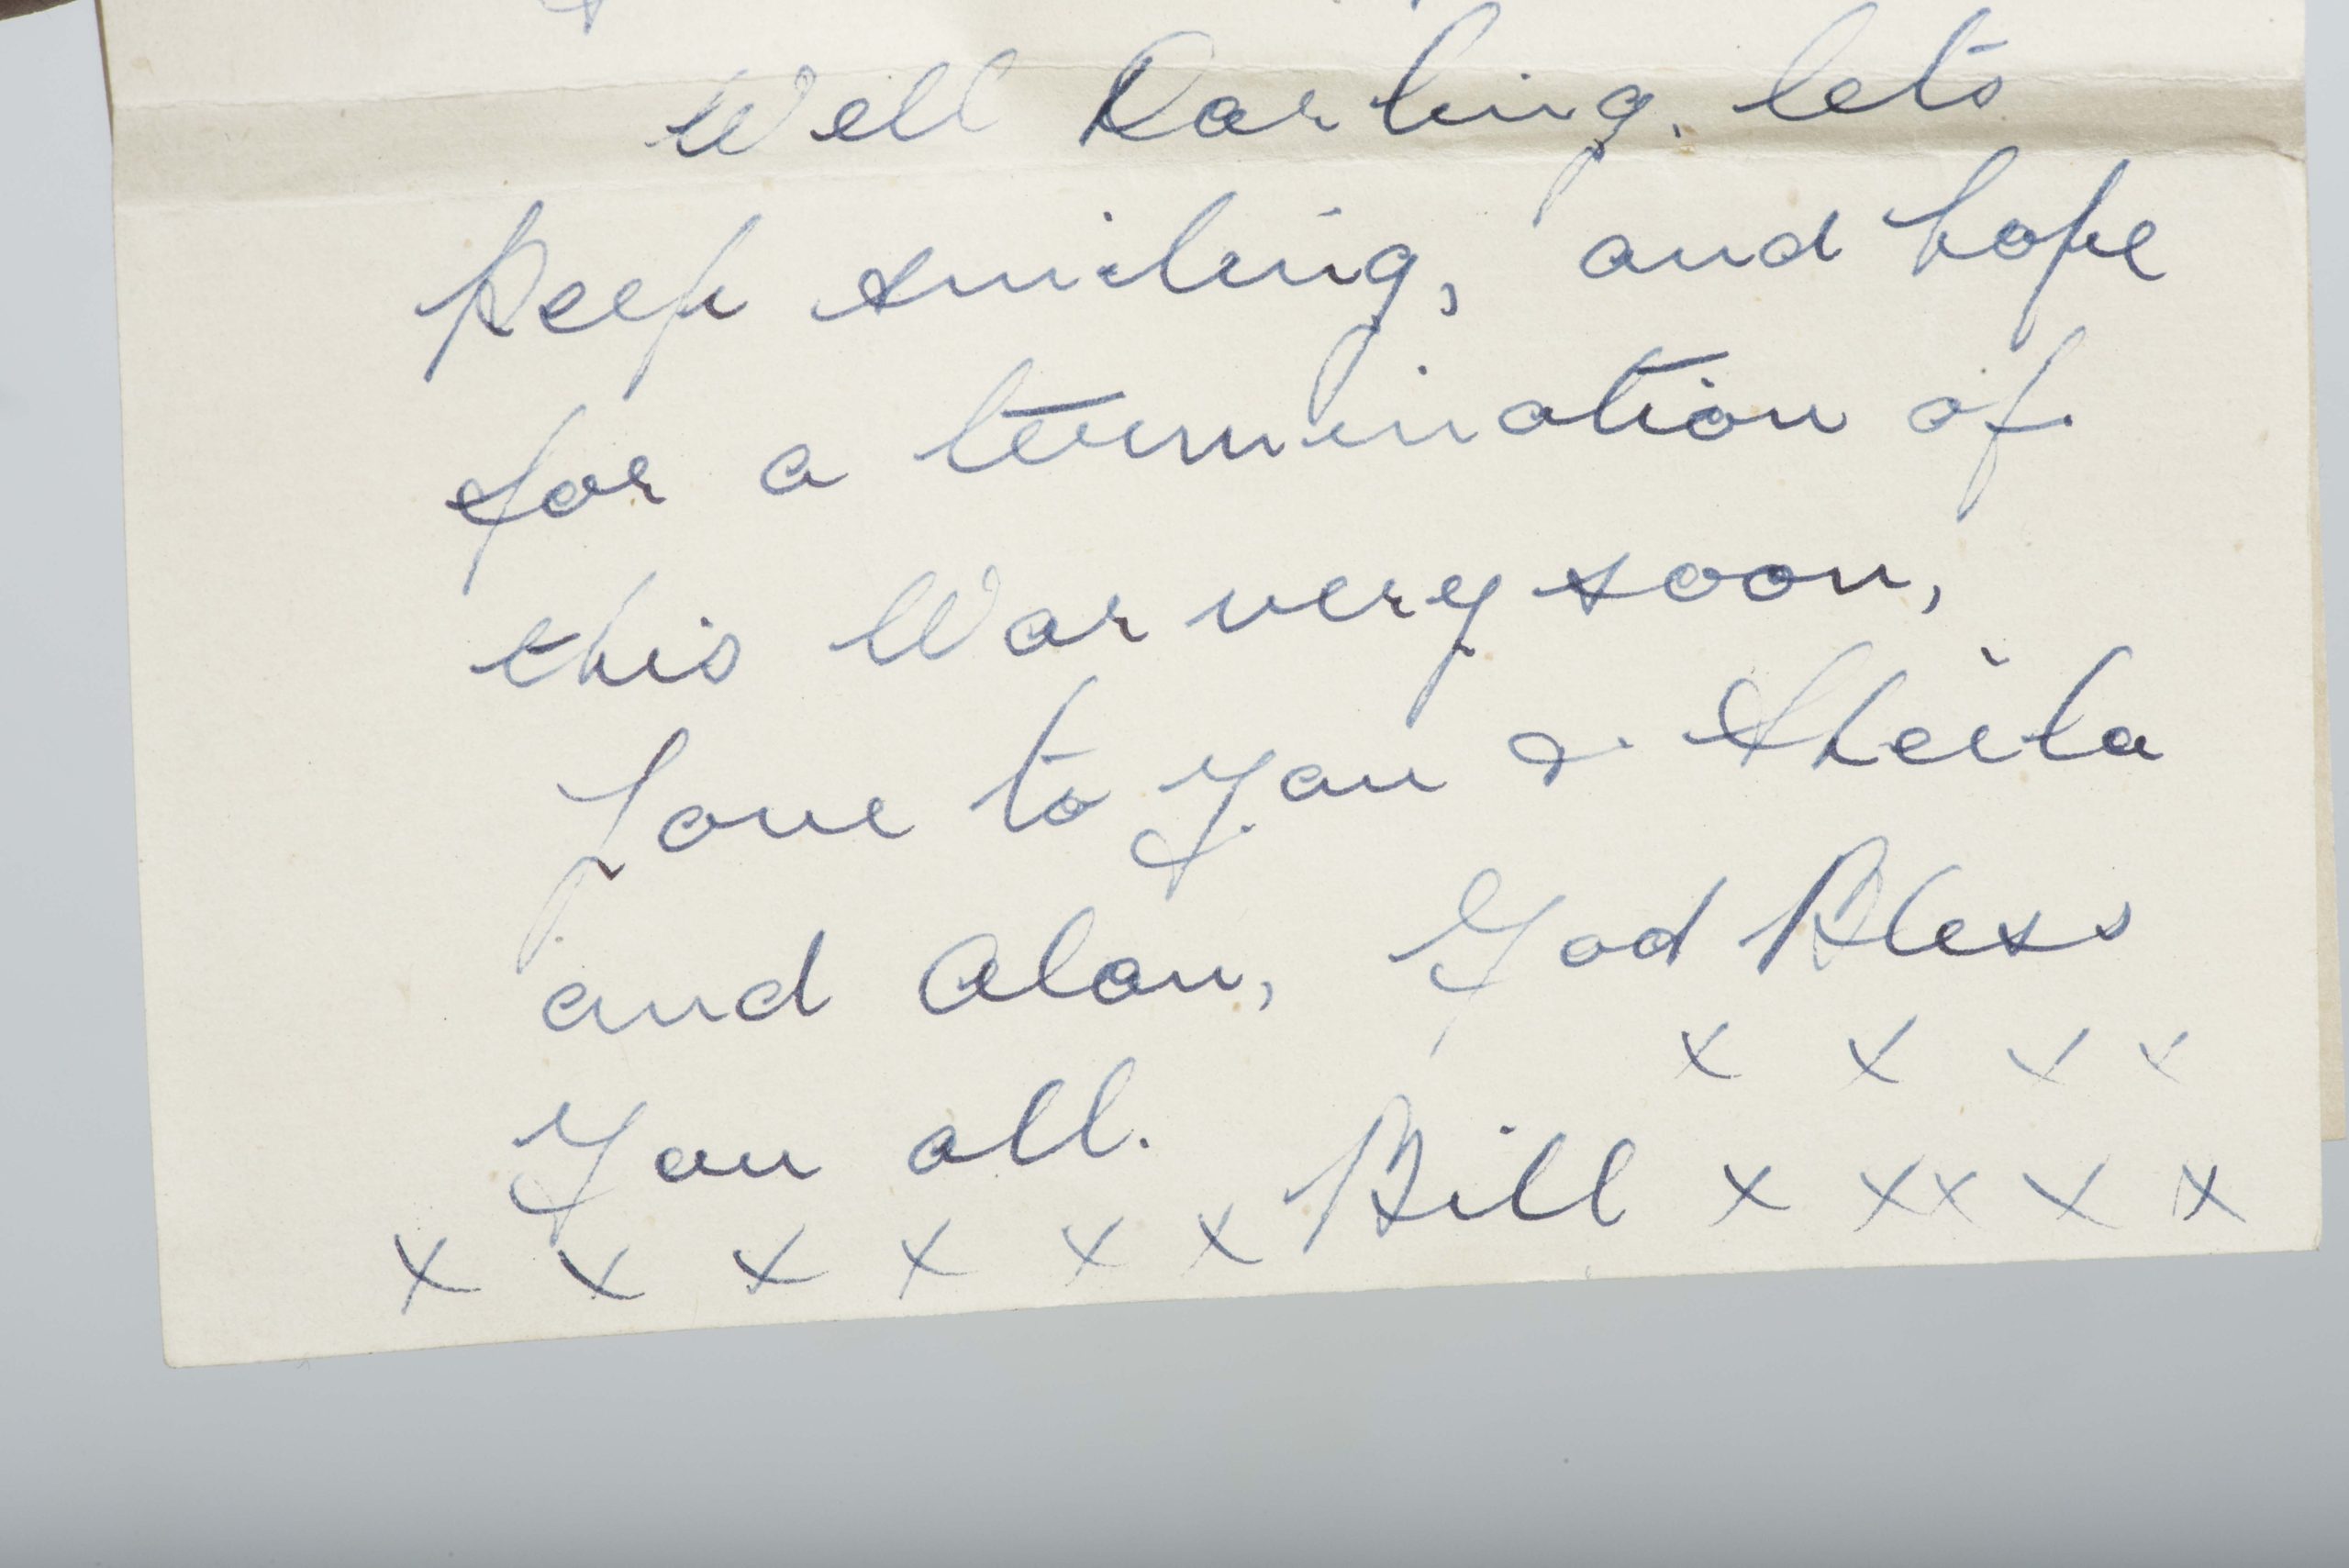 Well Darling, lets
keep smiling, and hope
for a termination of
this War very soon,
Love to You & Sheila
and Alan, God Bless
x x x x
You all. Bill x x x x x
x x x x x x